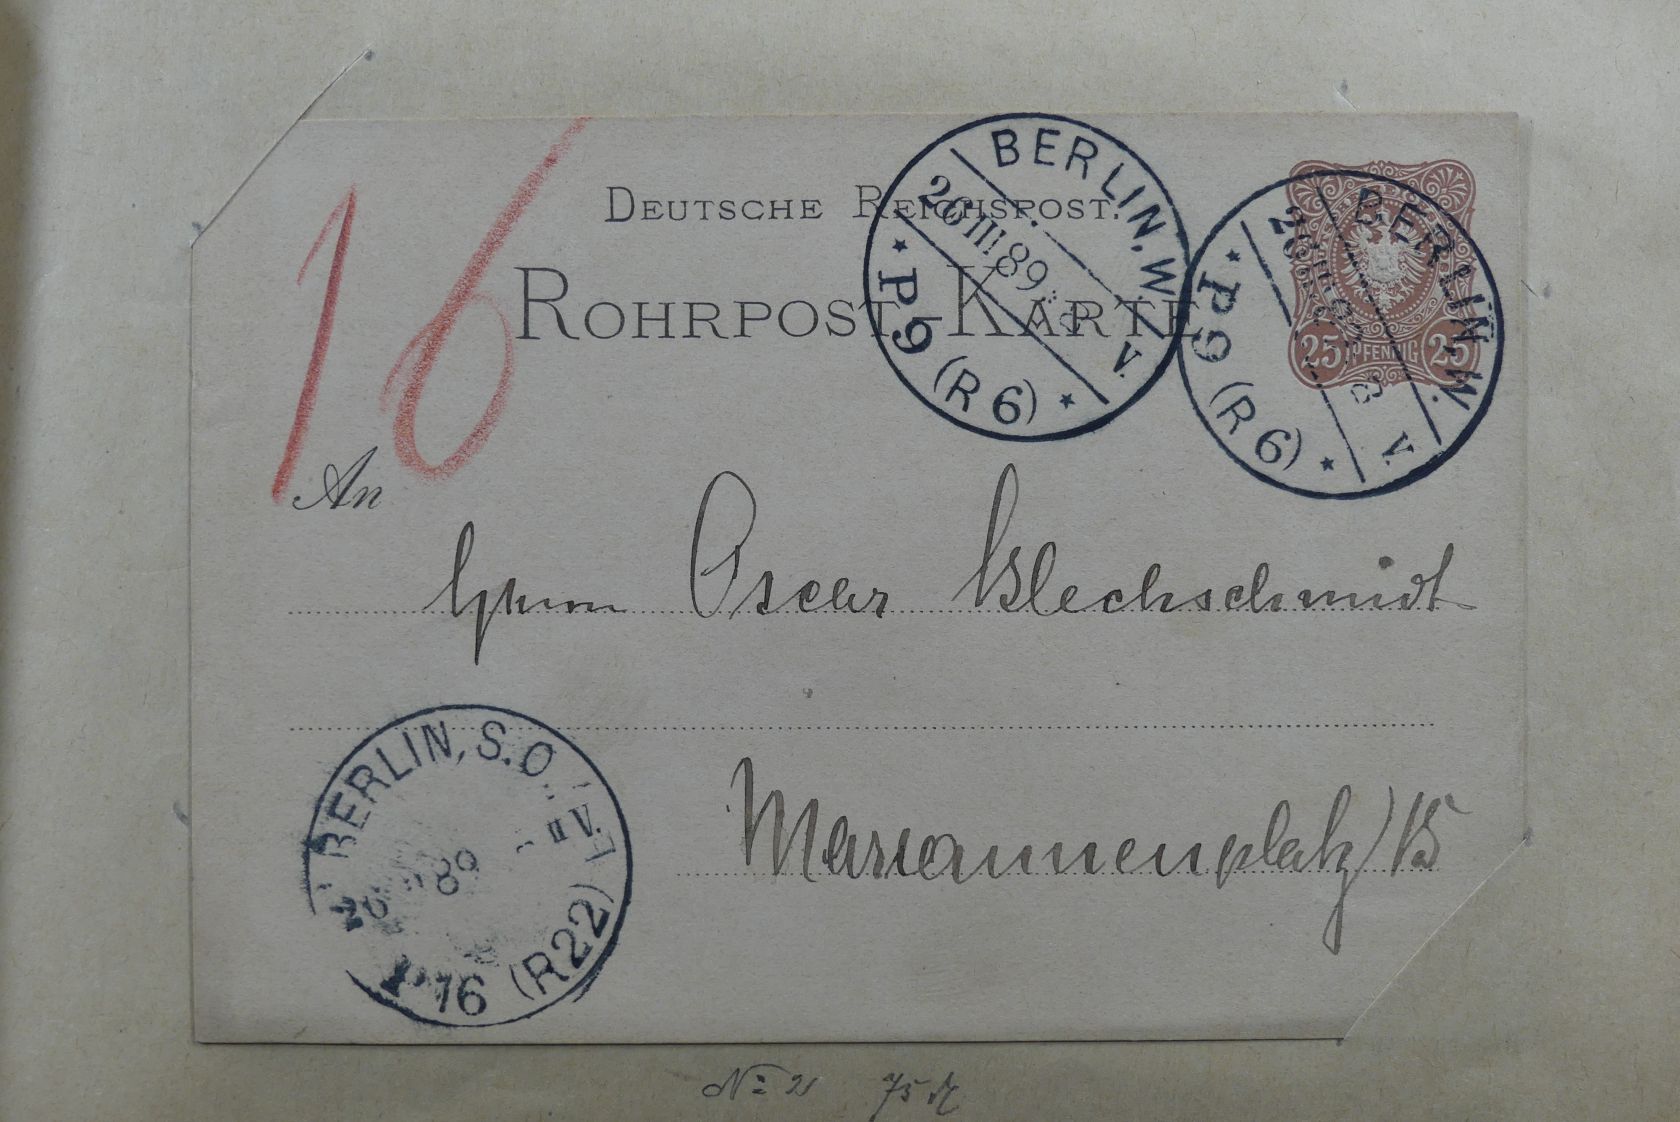 16
DEUTSCHE REICHSPOST.
ROHRPOST-KARTE
BERLIN, W.
26 III 89
V.
* P9 (R6) *
BERLIN, W.
V.
* P9 (R6) *
25 PFENNIG 25
An
Herrn Oscar Blechschmidt
Mariannenplatz 15
BERLIN, S.O.
V.
26 89
P 16 (R22)
No 21 75 M